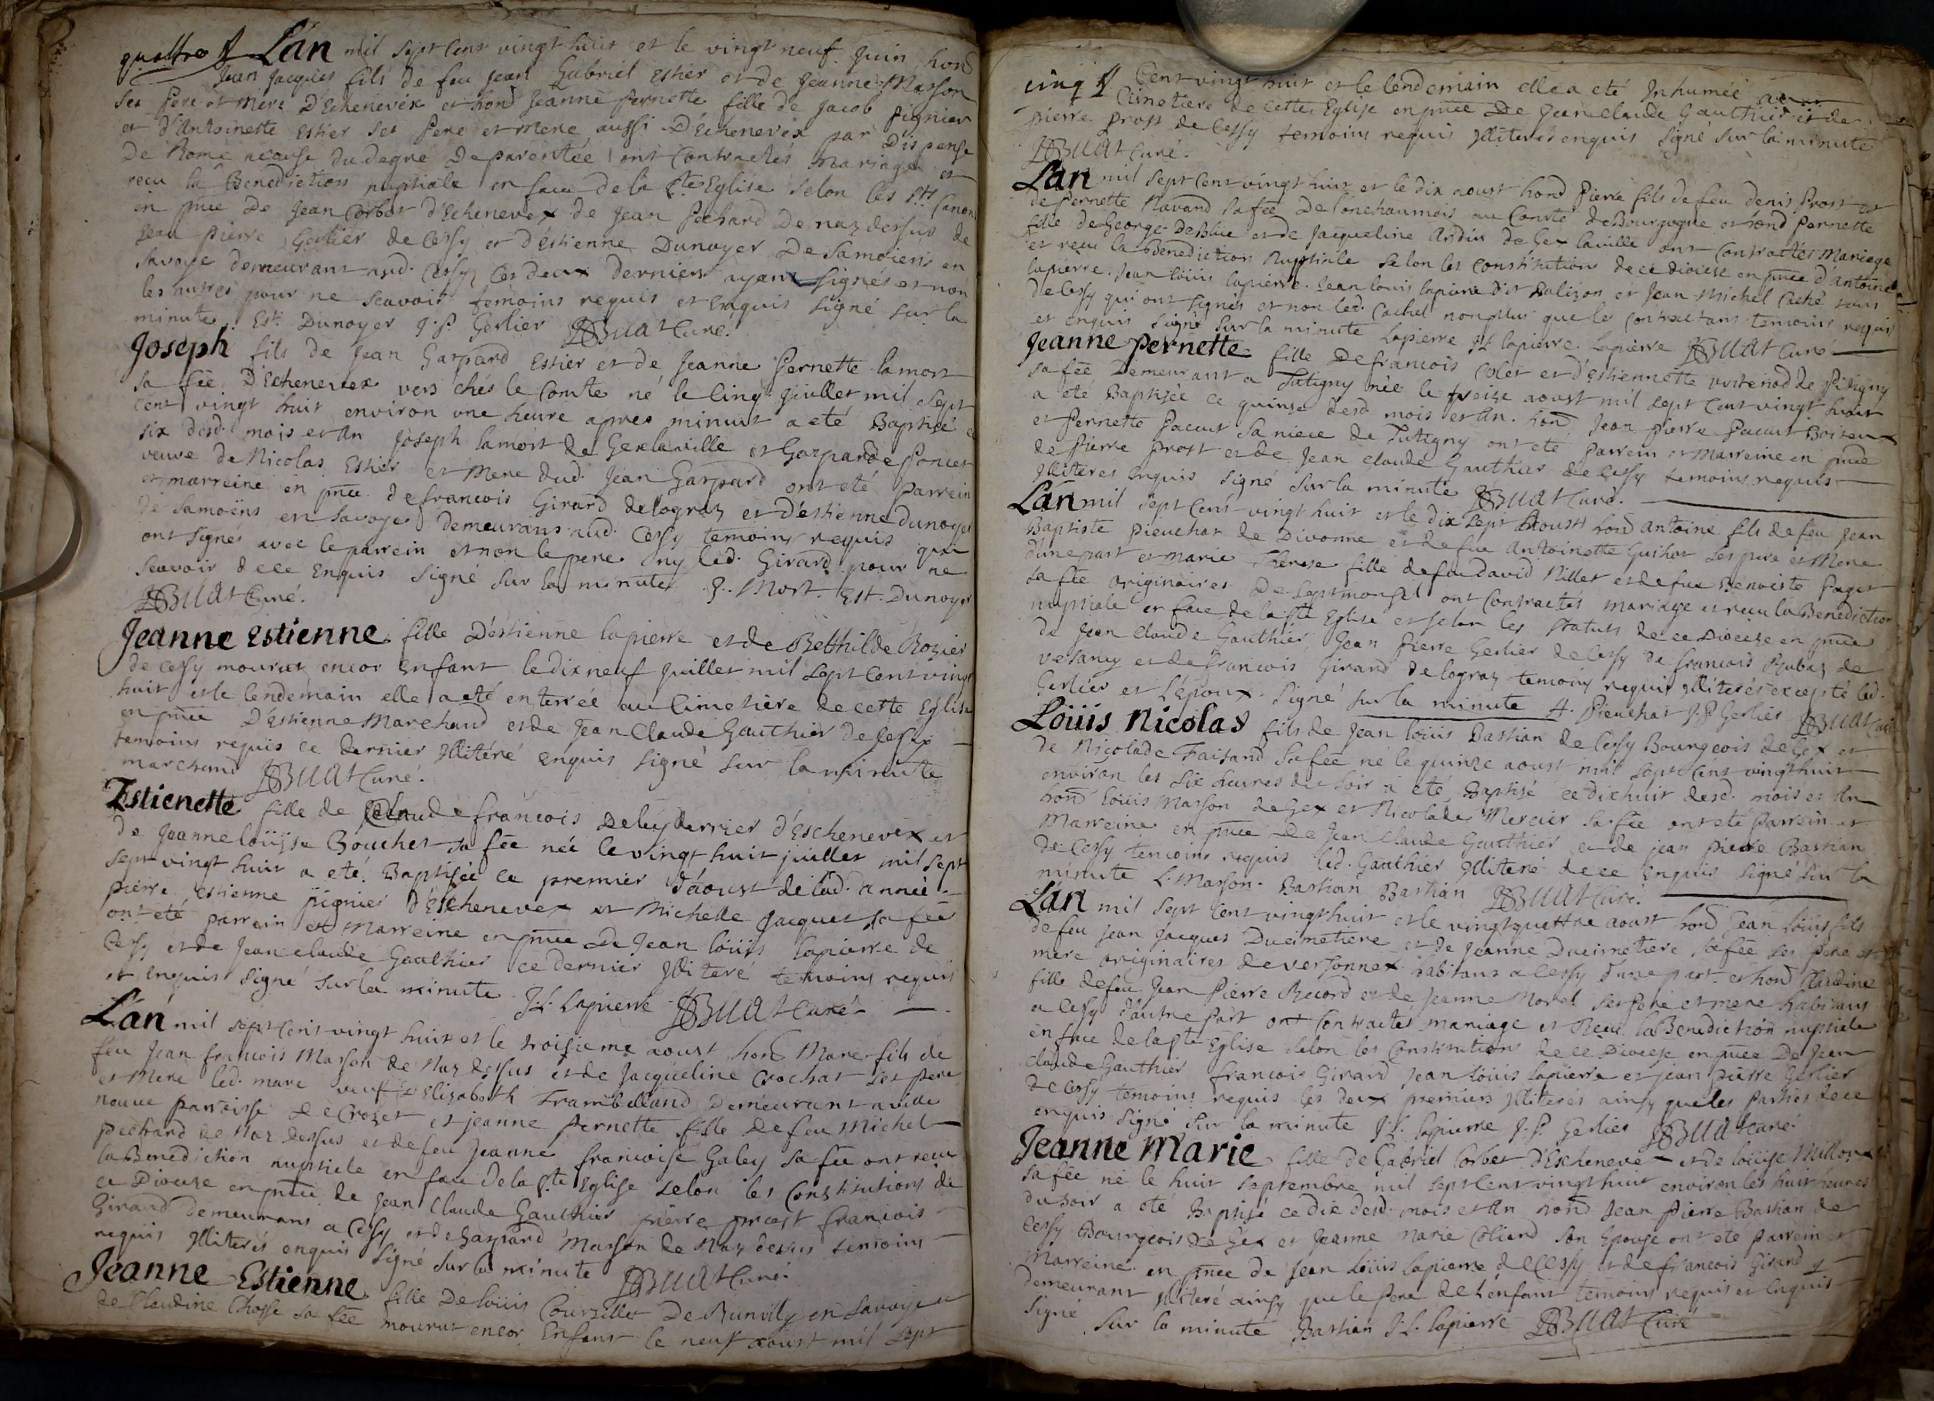 quattre L'án mil sept Cent vingt huit et le vingt neuf Juin hond
Jean Jacques fils de feu Jean Gabriel Estier et de Jeanne Masson
ses Pere et Mere D'Echenevex et hond Jeanne Pernette fille de Jacob Pignier
et d'Antoinette Estier ses Pere et Mere aussi D'Echenevex par Dispense
de Rome acause du degré de parentée, ont Contractés Mariage et
recu la Benediction nuptiale en face de la Ste Eglise selon les Sts Canons
en pnce De Jean Corbet d'Echenevex de Jean Pechard de naz dessus de
Jean Pierre Gerlier de Cessy et d'Estienne Dunoyer De Samoiens en
Savoye demeurant aud. Cessy Ces deux derniers ayant signés et non
les autres pour ne scavoir temoins requis et Enquis signé sur la
minute. Est. Dunoyer J. P. Gerlier Buat Curé.
Joseph fils de Jean Gaspard Estier et de Jeanne Pernette lamort
sa fée D'Echenevex vers chés le Comte né le Cinq Juillet mil sept
Cent vingt huit environ une heure apres minuit a eté Baptisé
six desd. mois et An Joseph lamort de Gex la ville et Gasparde Poncet
veuve de Nicolas Estier et Mere dud. Jean Gaspard ont eté Parrein
et marreine en pnce de francois Girard de lograz et d'estienne Dunoyer
de Samoëns en Savoye demeurans aud. Cessy temoins requis qui
ont signés avec le parrein et non le pere ny led. Girard pour ne
scavoir de ce Enquis signé sur la minute J. Mort. Est. Dunoyer
Buat Curé.
Jeanne Estienne fille D'estienne lapierre et de Bethilde Rozier
de Cessy mourut encor Enfant le dix neuf Juillet mil sept Cent vingt
huit et le lendemain elle a eté enterrée au Cimetière de cette Eglise
en pnce D'Estienne Marchand et de Jean Claude Gauthier de Cessy
temoins requis ce dernier Illitéré enquis signé sur la minute
marchand Buat Curé.
Estienette fille de Claude francois Deleyderrier d'Eschenevex et
de Jeanne loüise Bouchet sa fée née le vingt huit juillet mil sept
sept vingt huit a eté Baptisée ce premier d'aoust de lad. année
pierre estienne pignier d'Eschenevex et Michelle Jacquet sa fée
ont eté parrein et Marreine en pnce de Jean loüis lapierre de
Cessy et de Jean claude Gauthier ce dernier Illiteré temoins requis
et Enquis signé sur la minute J. L. Lapierre Buat Curé
L'án mil sept Cent vingt huit et le troisieme aoust hond Marc fils de
feu Jean francois Masson de Naz dessus et de Jacqueline Crochat ses pere
et Mere led. marc veuf d'Elisabeth Framballand Demeurant a ville
neuve parroisse de Crozet et jeanne Pernette fille de feu Michel
pechard de Naz dessus et de feu Jeanne francoise Galey sa fée ont receu
la Benediction nuptiale en face de la Ste Eglise selon les Constitutions de
ce Diocese en pnce de Jean Claude Gauthier pierre prost francois
Girard demeurans a Cessy et de Gaspard Masson de Naz dessus temoins
requis Illiterés enquis signé sur la minute Buat Curé.
Jeanne Estienne fille De loüis Courzillet De Rumilly en Savoye et
de Claudine Chosse sa fée mourut encor Enfant le neuf aoust mil sept
cinq Cent vingt huit et le lendemain elle a eté Inhumée au
Cimetiere de cette Eglise en pnce De Jean Claude Gauthier et de
Pierre prost de Cessy temoins requis Illiterés enquis signé sur la minute
Buat Curé.
L'án mil sept Cent vingt huit et le dix aoust hond Pierre fils de feu Denis Prost et
de Pernette Ravand sa fée De lonchaumois au Comté de Bourgogne et hond Pernette
fille de George Deblue et de Jacqueline Ardin de Gex la ville ont Contractés Mariage
et recu la Benediction Nuptiale selon les Constitutions de ce Diocese en pnce d'Antoine
lapierre. Jean loüis lapierre. Jean louis lapierre dit Balizon et Jean Michel Caché tous
de Cessy qui ont signés et non led. Cachet non plus que les contractans temoins requis
et enquis signé sur la minute Lapierre J L lapierre. Lapierre Buat Curé
Jeanne Pernette fille de francois Colet et d'Estiennette vuitenod de Pitigny
sa fée Demeurant a Tutigny née le treize aoust mil sept Cent vingt huit
a eté Baptisée ce quinze desd mois et An. hond Jean pierre Pacut Boiteux
et Pernette Pacut sa niece de Tutigny ont eté Parrein et Marreine en pnce
de Pierre Prost et de Jean Claude Gauthier de Cessy temoins requis
Illiteres enquis signé sur la minute Buat Curé.
L'án mil sept Cent vingt huit et le dix sept Aoust hond Antoine fils de feu Jean
Baptiste Pieuchat de Divonne et de feue Antoinette Guichot ses pere et Mere
d'une part et Marie Therese fille de feu David Nillet et de feue Benoiste Paget
sa fée originaires De septmoncel ont Contractés mariage et recu la Benediction
nuptiale en face de la Ste Eglise et selon les statuts de ce Diocese en pnce
de Jean claude Gauthier Jean Pierre Gerlier de Cessy de francois Rubaz de
vesancy et de francois Girard de lograz temoins requis Illiterés excepté led.
Gerlier et l'Epoux. signé sur la minute A. Pieuchat J. P Gerlier Buat Curé
Loüis Nicolas fils de Jean loüis Bastian de Cessy Bourgeois de Gex et
de Nicolade Faisand sa fée né le quinze aoust mil sept Cent vingt huit
environ les six heures du soir a eté Baptisé ce dixhuit desd. mois et An
hond loüis Masson de Gex et Nicolade Mercier sa fée ont eté Parrein et
Marreine en pnce De Jean Claude Gauthier et de jean pierre Bastian
de Cessy temoins requis led. Gauthier Illiteré de ce Enquis signé sur la
minute L. Masson. Bastian Bastian Buat Curé.
L'án mil sept Cent vingt huit et le vingt quattre aoust hond Jean loüis fils
de feu jean Jacques Ducimetiere et de Jeanne Ducimetiere sa fée ses Pere et
mere originaires de versonnex habitans a Cessy d'une part et hond Claudine
fille de feu Jean Pierre Record et de Jeanne Morel ses Pere et mere habitans
a Cessy d'autre part ont Contractés mariage et Receu la Benediction nuptiale
en face de la Ste Eglise selon les Constitutions de ce Diocese en pnce De Jean
claude Gauthier francois Girard Jean loüis lapierre et jean pierre Gerlier
de Cessy temoins requis les deux premiers Illiteres ainsy que les parties de ce
enquis signé sur la minute J. L. lapierre J. P. Gerlier Buat Curé.
Jeanne Marie fille de Gabriel Corbet d'Eschenevé et de loüise Millon
sa fée né le huit septembre mil sept Cent vingt huit environ les huit heures
du soir a eté Baptisé ce dix desd. mois et An hond Jean Pierre Bastian de
Cessy Bourgeois de Gex et Jeanne Marie Oliand son Epouse ont eté parrein et
Marreine en pnce de Jean loüis lapierre de Cessy et de francois Girard y
demeurant Illiteré ainsy que le Pere de l'enfant temoins requis et Enquis
signé sur la minute Bastian J. L. lapierre Buat Curé